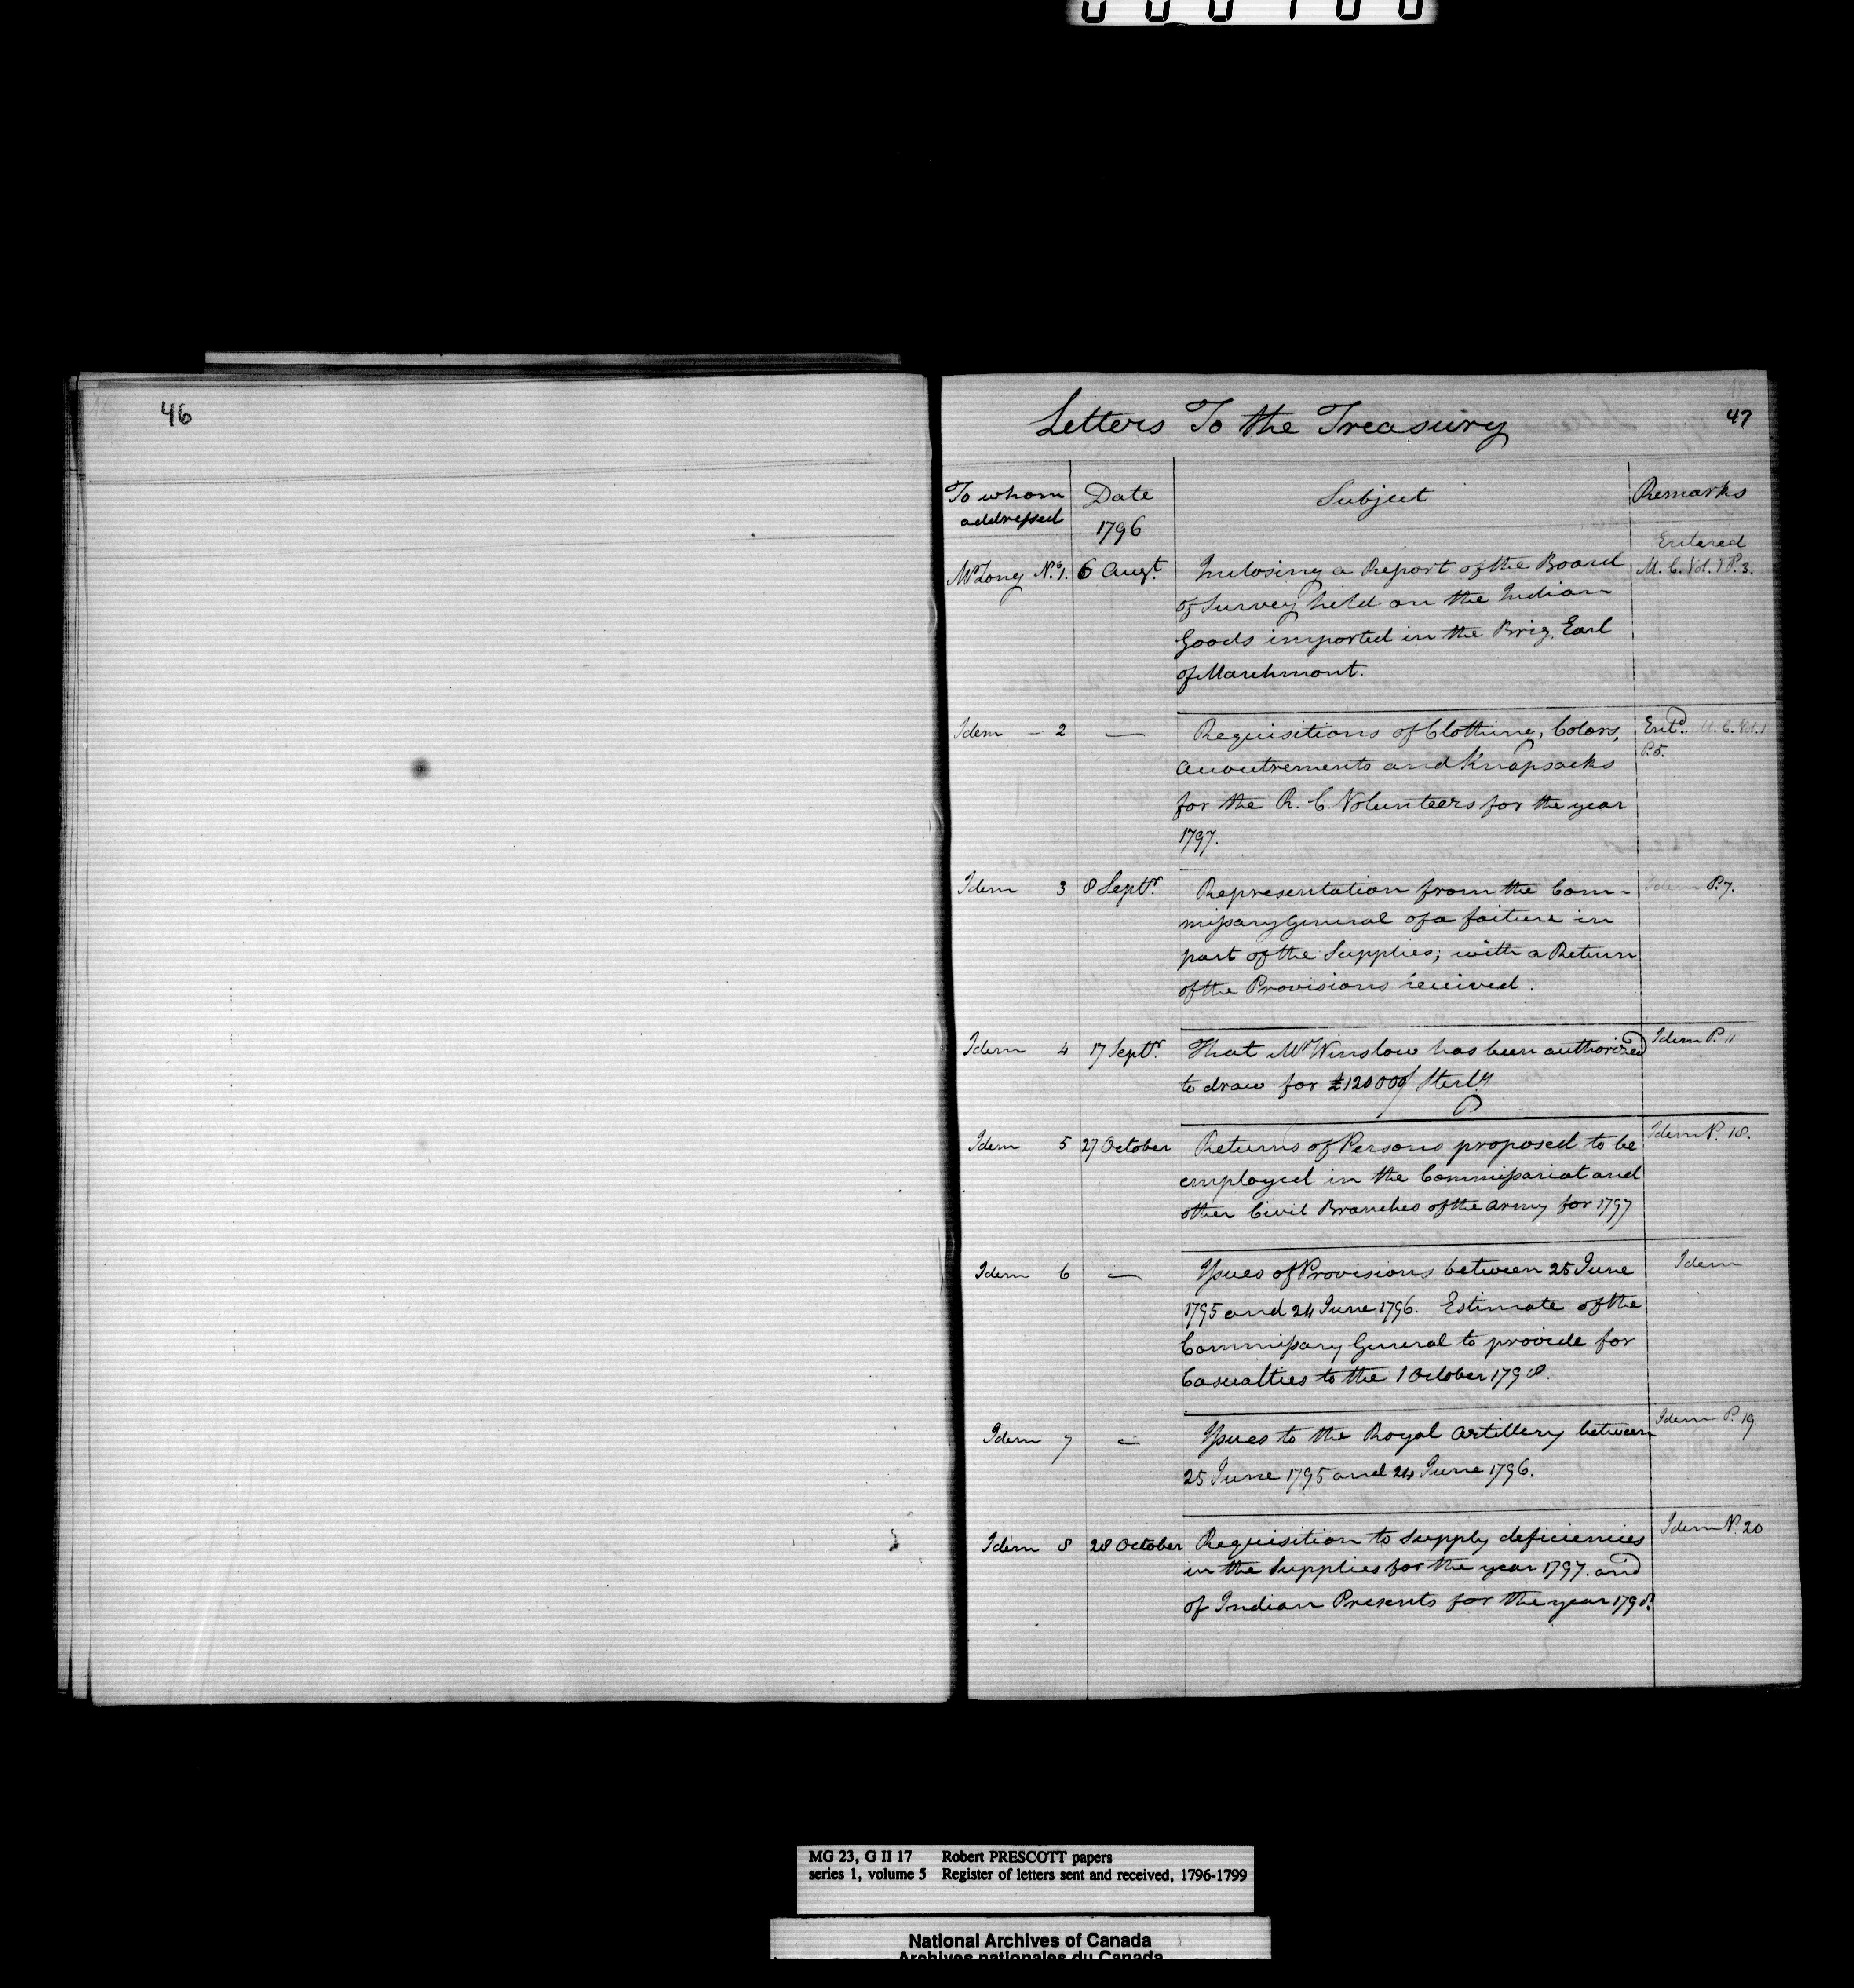 46
47
Letters To the Treasury
To whom addressed
Date
1796
Subject
Remarks
Mr Long No. 1. 6 Augt. Inclosing a Report of the Board
of Survey held on the Indian
Goods imported in the Brig. Earl
of Marchmont.
Entered
M. C. Vol. 1 P. 3.
Idem - 2 — Requisitions of Clothing, Colors,
Accoutrements and Knapsacks
for the R. C. Volunteers for the year
1797.
Entd. M. C. Vol. 1
P. 5.
Idem 3 8 Septr. Representation from the Com-
missary General of a failure in
part of the Supplies; with a Return
of the Provisions received.
Idem P. 7.
Idem 4 17 Septr. That Mr Winslow has been authorized
to draw for £12000 Sterlg
Idem P. 11
Idem 5 27 October Returns of Persons proposed to be
employed in the Commissariat and
other Civil Branches of the Army for 1797
Idem P. 18.
Idem 6 — Issues of Provisions between 25 June
1795 and 24 June 1796. Estimate of the
Commissary General to provide for
Casualties to the 1 October 1798.
Idem
Idem 7 — Issues to the Royal Artillery between
25 June 1795 and 24 June 1796.
Idem P. 19
Idem 8 28 October Requisition to supply deficiencies
in the Supplies for the year 1797. and
of Indian Presents for the year 1798.
Idem P. 20
MG 23, G II 17 Robert PRESCOTT papers
series 1, volume 5 Register of letters sent and received, 1796-1799
National Archives of Canada
Archives nationales du Canada